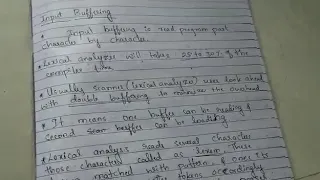 Input Buffering
• Input buffering is read program
character by character.
• Lexical analyzer will takes 25 to 30% of the
compiler time
• Usually scanner (lexical analyzer) uses look ahead
with double buffering to minimize the overhead
• It means one buffer can be reading &
second buffer can be loading.
• Lexical analysis reads several character
those character called as lexem These
matched with pattern & once its
the tokens accordingly